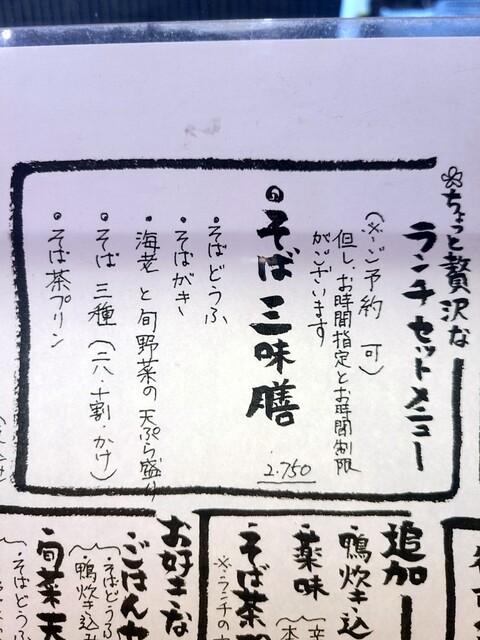 ちょっと贅沢な
ランチセットメニュー
(※ご予約可)
但し、お時間指定とお時間制限
がございます
そば三味膳
2.750
・そばどうふ
・そばがき
・海老と旬野菜の天ぷら盛り
・そば三種(二八・十割・かけ)
・そば茶プリン
追加
・鴨炊き込
・薬味
・そば茶
※ランチの
お好きな
ごはんや
・そばどうる
・鴨炊き込み
・旬菜天
・そばどうふ